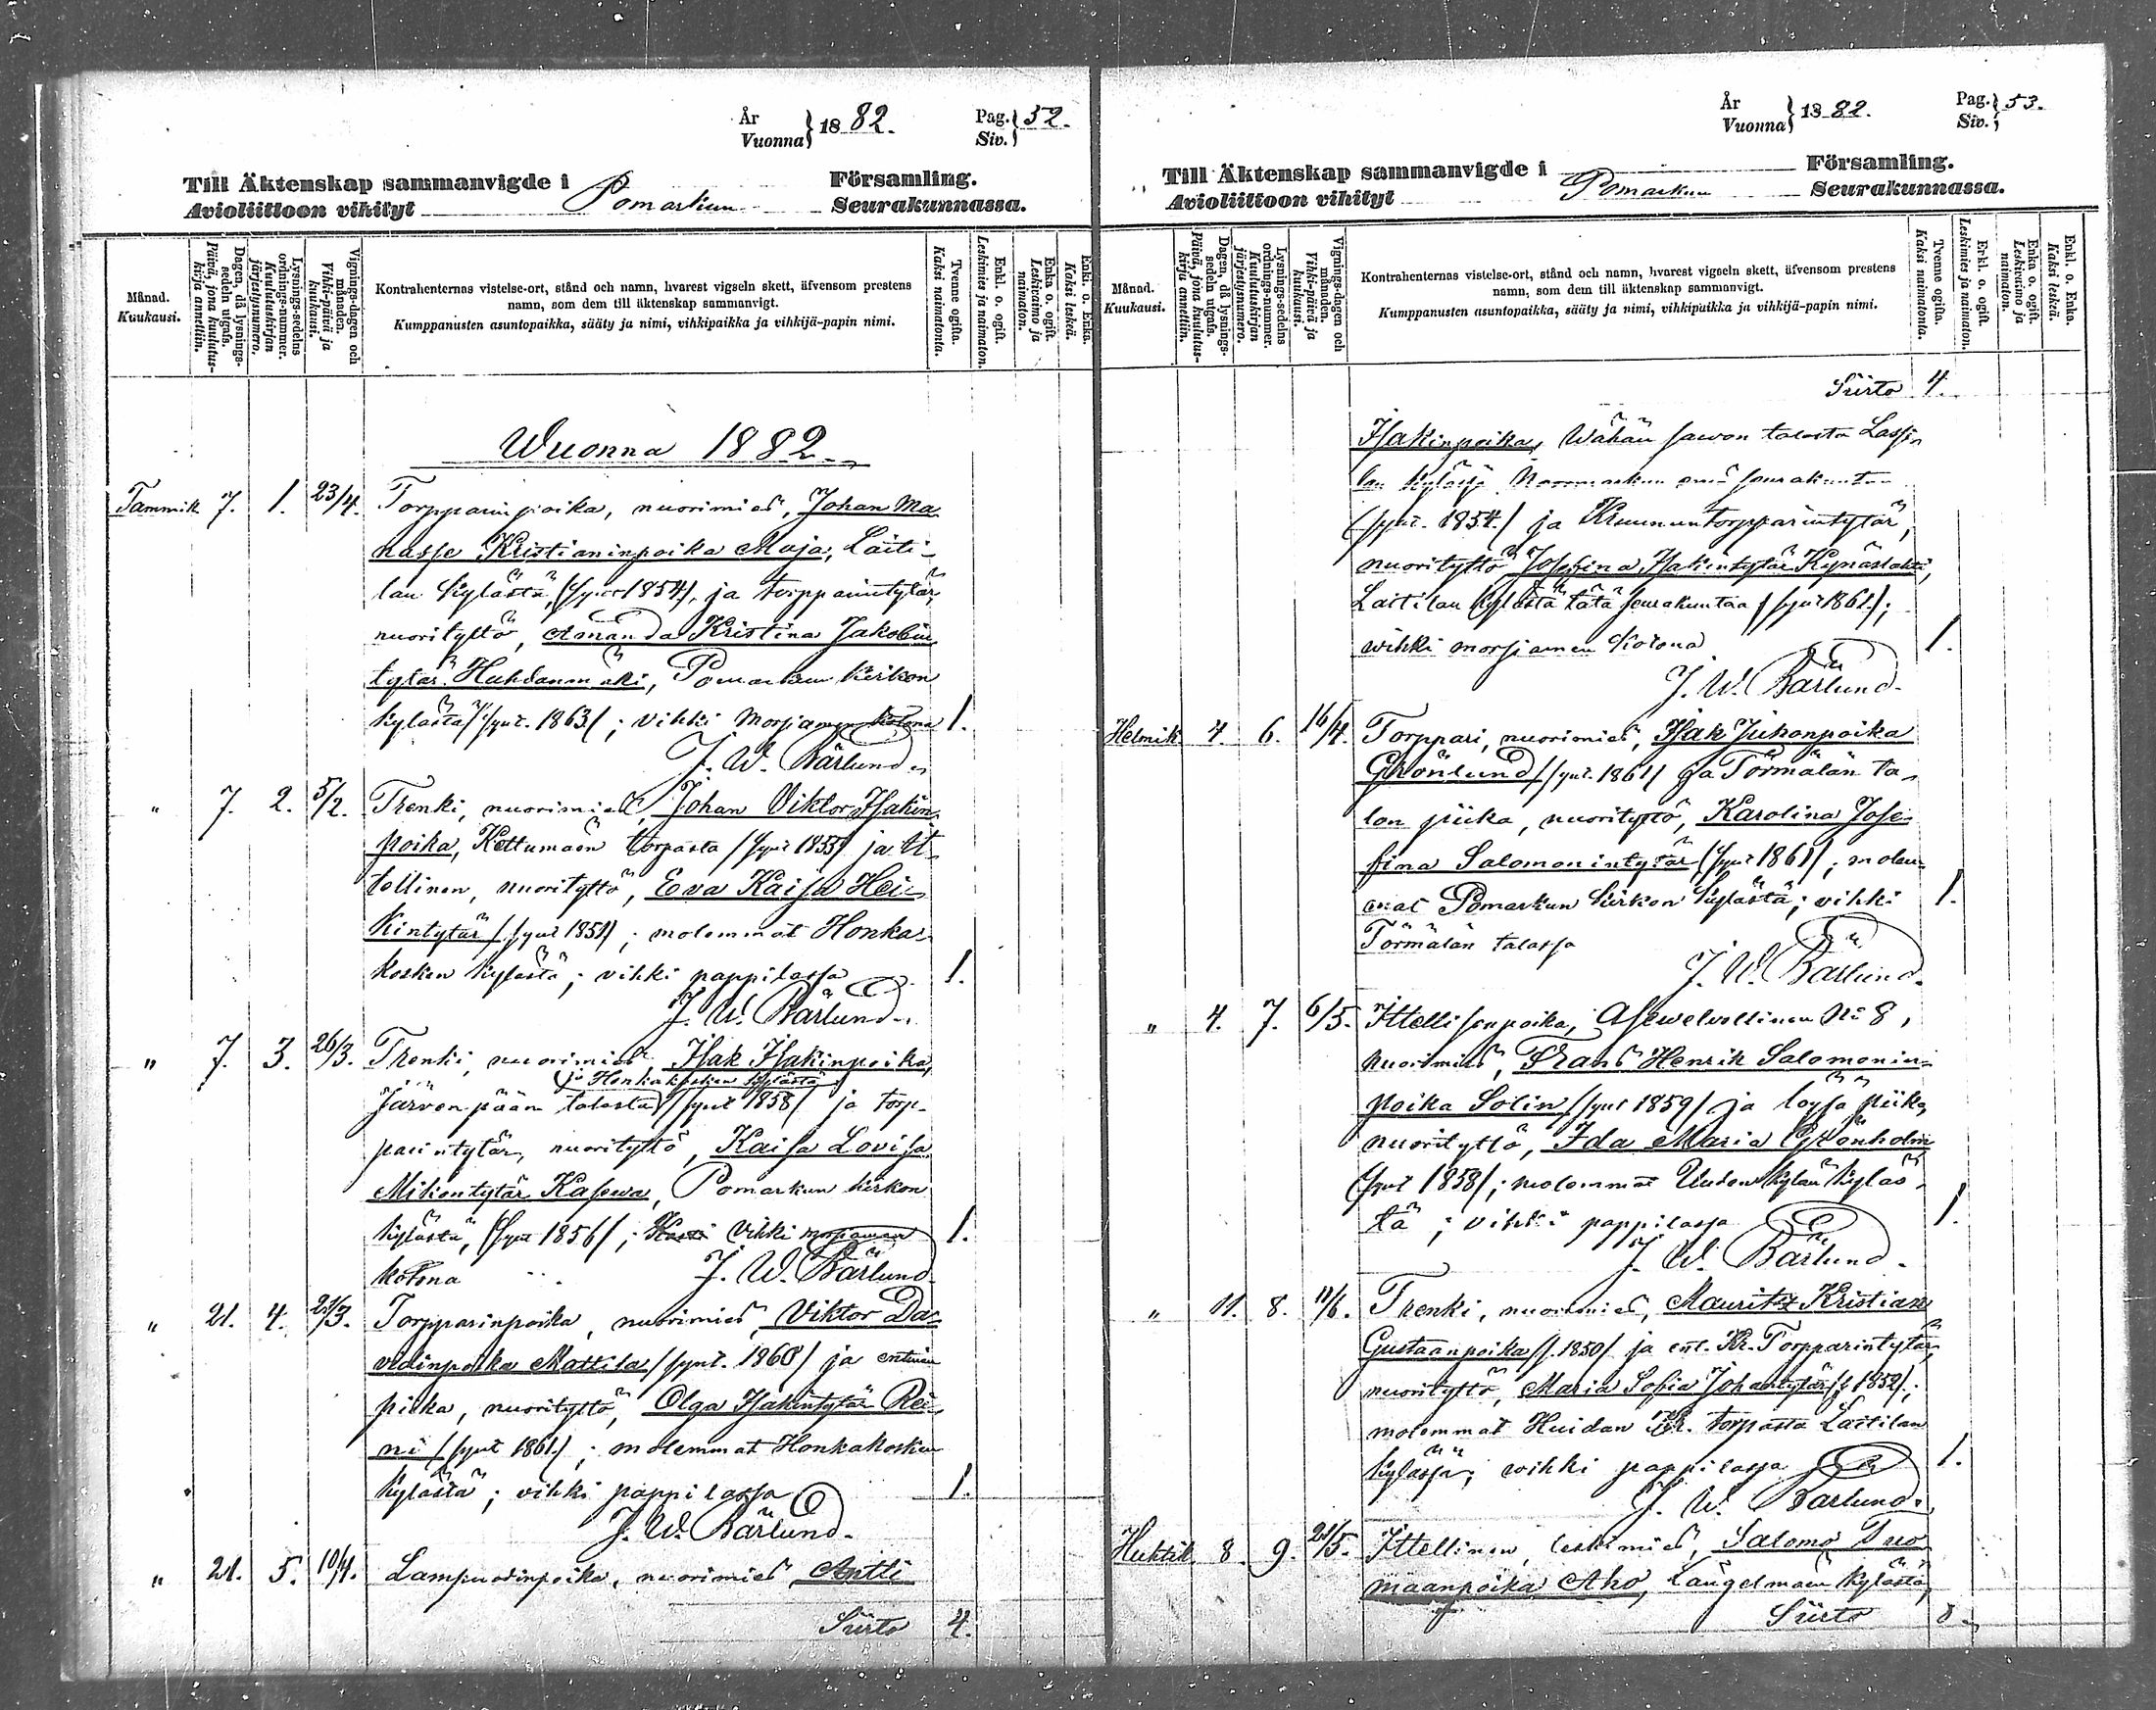 År
Vuonna } 1882.
Pag.
Siv. } 52.
Till Äktenskap sammanvigde i
Avioliittoon vihityt
Pomarkun
Församling.
Seurakunnassa.
Månad.
Kuukausi.
Dagen, då lysnings-sedeln utgafs.
Päivä, jona kuulutus-kirja annettiin.
Lysnings-sedelns ordnings-nummer.
Kuulutuskirjan järjestysnumero.
Vignings-dagen och månaden.
Vihki-päivä ja kuukausi.
Kontrahenternas vistelse-ort, stånd och namn, hvarest vigseln skett, äfvensom prestens
namn, som dem till äktenskap sammanvigt.
Kumppanusten asuntopaikka, sääty ja nimi, vihkipaikka ja vihkijä-papin nimi.
Tvenne ogifta.
Kaksi naimatonta.
Enkl. o. ogift.
Leskimies ja naimaton.
Enka o. ogift.
Leskivaimo ja naimaton.
Enkl. o. Enka.
Kaksi leskeä.
Wuonna 1882
Tammik 7. 1. 23/4. Torpparinpoika, nuorimies, Johan Ma
nasse Kristianinpoika Maja, Laiti-
lan kylästä, (synt 1854), ja torpparintytär,
nuorityttö, Amanda Kristina Jakobin
tytär Huhdanmäki, Pomarkun kirkon
kylästä (synt. 1863); vihki morsiamen kotona 1.
J. W. Bärlund.
" 7. 2. 5/2. Trenki, nuorimies, Johan Viktor Isakin-
poika, Kettumäen torpasta (synt 1855) ja It-
tellinen, nuorityttö, Eva Kaisa Hei-
kintytär (synt 1851); molemmat Honka-
kosken kylästä; vihki pappilassa 1.
J. W. Bärlund.
" 7. 3. 26/3. Trenki, nuorimies Isak Isakinpoika,
ja Honkakosken kylästä
Järvenpään talosta (synt 1858) ja torp-
parintytär, nuorityttö, Kaisa Lovisa
Mikontytär Kasewa, Pomarkun kirkon
kylästä, (synt 1856); vihki morsiamen 1.
kotona J. W. Bärlund.
" 21. 4. /3. Torpparinpoika, nuorimies, Viktor Da-
vidinpoika Mattila (synt. 1860) ja entinen
piika, nuorityttö, Olga Isakintytär Rei-
ni (synt 1861.); molemmat Honkakosken
kylästä; vihki pappilassa 1.
J. W. Bärlund.
" 21. 5. 10/4. Lampuodinpoika, nuorimies Antti
Siirto 4.
År
Vuonna } 1882.
Pag.
Siv. } 53.
Till Äktenskap sammanvigde i
Avioliittoon vihityt
Pomarkun
Församling.
Seurakunnassa.
Månad.
Kuukausi.
Dagen, då lysnings-sedeln utgafs.
Päivä, jona kuulutus-kirja annettiin.
Lysnings-sedelns ordnings-nummer.
Kuulutuskirjan järjestysnumero.
Vignings-dagen och månaden.
Vihki-päivä ja kuukausi.
Kontrahenternas vistelse-ort, stånd och namn, hvarest vigseln skett, äfvensom prestens
namn, som dem till äktenskap sammanvigt.
Kumppanusten asuntopaikka, sääty ja nimi, vihkipaikka ja vihkijä-papin nimi.
Tvenne ogifta.
Kaksi naimatonta.
Erkl. o. ogift.
Leskimies ja naimaton.
Enka o. ogift.
Leskivaimo ja naimaton.
Enkl. o. Enka.
Kaksi leskeä.
Siirto 4.
Isakinpoika, Wähän sawon talosta Lassi-
lan kylässä Noormarkun emä seurakuntaa
(synt. 1854.) ja Kruununtorpparintytär,
nuorityttö Josefina Isakintytär Kynäslahti,
Laitilan kylästä tätä seurakuntaa (synt 1861.);
wihki morsiamen kotona 1.
J. W. Bärlund.
Helmik 4. 6. 16/4. Torppari, nuorimies, Isak Juhonpoika
Grönlund (synt. 1861) ja Törmälän ta-
lon piika, nuorityttö, Karolina Jose-
fina Salomonintytär (synt 1861); molem-
mat Pomarkun kirkon kylästä; vihki 1.
Törmälän talossa
J. W. Bärlund.
" 4. 7. 6/5. Ittellisenpoika, Asewelvollinen № 8,
nuorimies, Frans Henrik Salomonin-
poika Solin (synt 1859) ja loysa piika,
nuorityttö, Ida Maria Grönholm
(synt 1858); molemmat Uudenkylän kyläs-
tä; vihki pappilassa 1.
J. W. Bärlund.
" 11. 8. 11/6. Trenki, nuorimies, Mauritz Kristian
Gustaanpoika (s. 1850) ja ent. Kr. Torpparintytär,
nuorityttö, Maria Sofia Johantytär (s 1852);
molemmat Huidan Kr. torpasta Laitilan
kylässä; wihki pappilassa 1.
J. W. Bärlund.
Huhtik 8. 9. 21/5. Ittellinen, leskimies, Salomo Tuo
maanpoika Aho, Längelmäen kylästä,
Siirto 8.